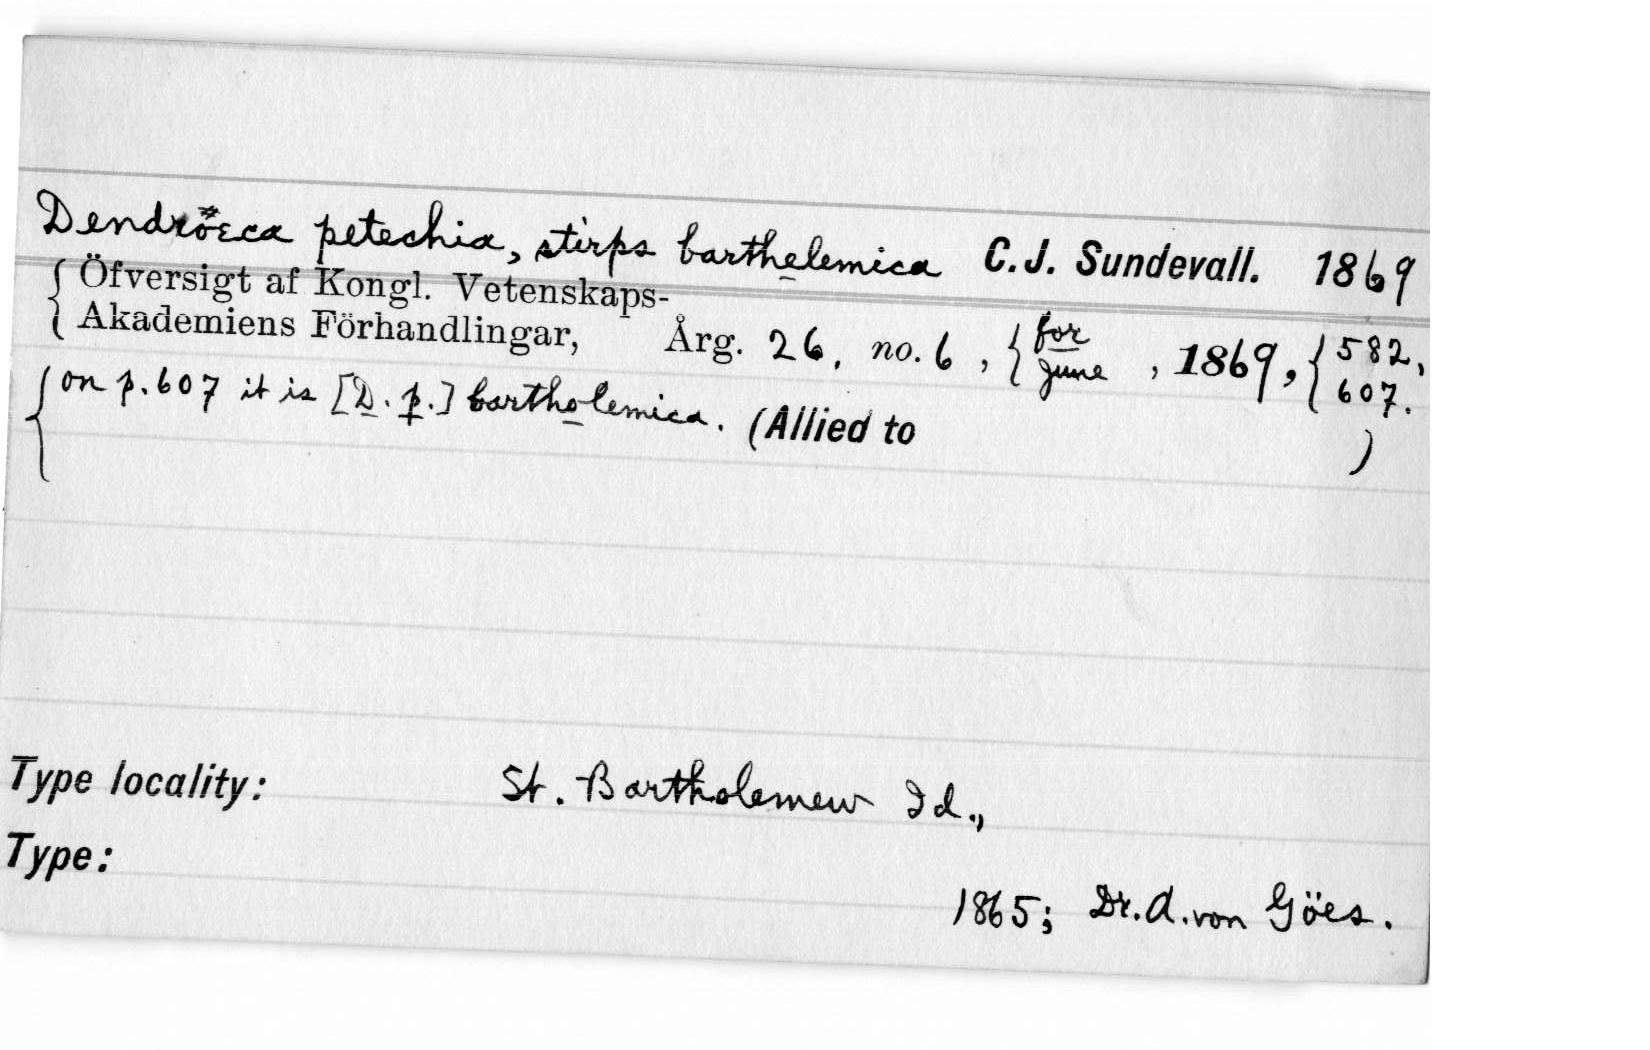 Dendröeca petechia, stirps barthelemica C.J. Sundevall. 1869
{ Öfversigt af Kongl. Vetenskaps-
Akademiens Förhandlingar, Årg. 26, no. 6, { for June, 1869, { 582, 607.
{ on p. 607 it is [D. p.] bartholemica. (Allied to )
Type locality: St. Bartholemew Id.,
Type:
1865; Dr. A. von Göes.